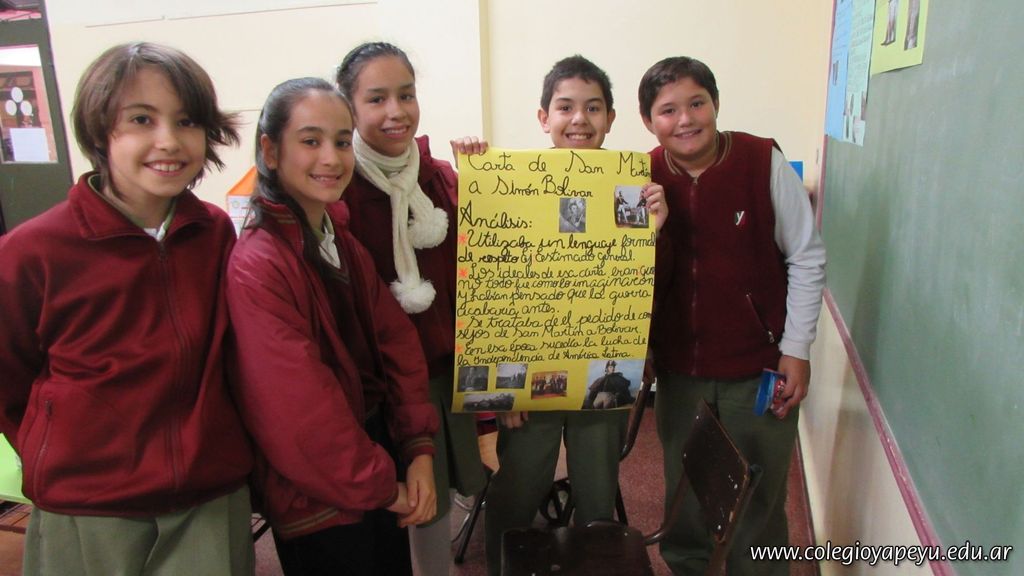 Carta de San Martín
a Simón Bolivar
Análisis:
* Utilizaba un lenguaje formal
de respeto ej estimado general.
* Los ideales de esa carta eran que
no todo fue como lo imaginaron
y habían pensado que la guerra
acabaría antes.
* Se trataba de el pedido de con
sejos de San Martín a Bolivar.
* en esa época sucedía la lucha de
la Independencia de América Latina.
y
www.colegioyapeyu.edu.ar